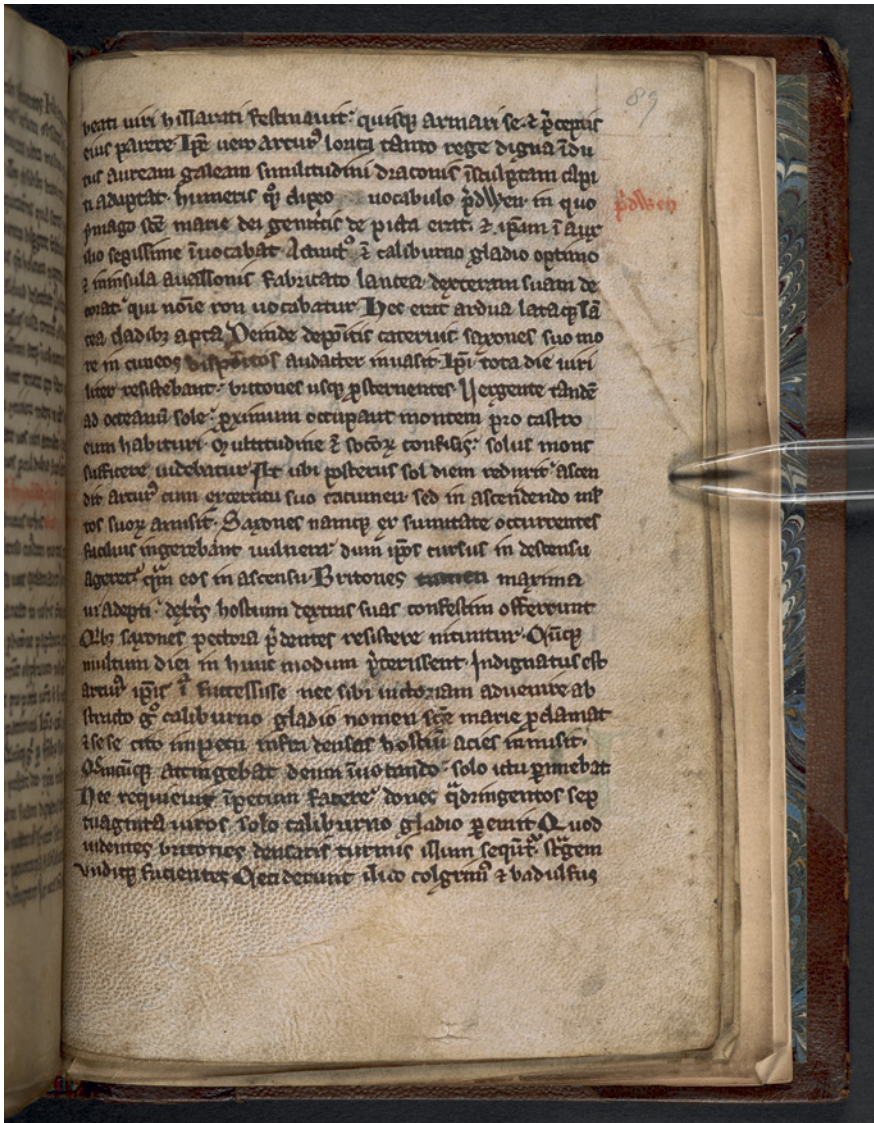 89
beati uiri hillarati festinauit quisq; armari se ⁊ p̄ceptis
eius parere Ip̄e uero arturꝰ lorica tanto rege digna īdu
tus auream galeam simulitudini draconis īsculptam capi
ti adaptat humeris qͦꝫ clipeo uocabulo p̄dwen in quo
ymago sc̄e marie dei genitͥcis de picta erat ⁊ ip̄am ī aux
p̄dwen
ilio sepissime īuocabat Accinctꝰ ē caliburno gladio optimo
⁊ ininsula auallonis fabricato lancea dexteram suam de
corat qui noīe ron uocabatur Hec erat ardua lataq; lā
cea cladibꝫ apta Deinde cateruis saxones suo mo
re in cuneos dispositos audacter inuasit Ip̄i tota die uiri
liter resistebant britones usq; ꝓsternentes Uergente tandē
ad oceanū sole ꝓximum occupant montem pro castro
eum habituri Multitudine ē socioꝝ confisis solus mons
sufficere uidebatur At ubi posterus sol diem reduxit ascen
dit arturꝰ cum exercitu suo cacumen sed in ascendendo ml̄
tos suoꝝ amisit Saxones namq; ex sumitate occurrentes
facilius ingerebant uulnera dum ip̄os cursus in descensu
ageret qͣm eos in ascensu Britones tamen maxima
ui adepti hostium dextris suas confestim offerrunt
Qͥbꝫ saxones pectora p̄dentes resistere nituntur Cūq;
multum diei in hunc modum p̄terissent Indignatus est
arturꝰ ip̄is successisse nec sibi uictoriam aduenire ab
stracto gͦ caliburno gladio nomen sc̄e marie ꝓclamat
⁊ sese cito impetu infra densas hostiū acies inmisit
Qͦmcūq; attingebat deum īuocando solo ictu ꝑimebat
Nec requieuit īpetum facere donec qͣdringentos sep
tuaginta uiros solo caliburno gladio ꝑemit Quod
uidentes britones densatis turmis illum sequt̄r stͣgem
undiq; facientes Ceciderunt ilico colgrinꝰ ⁊ badulfus